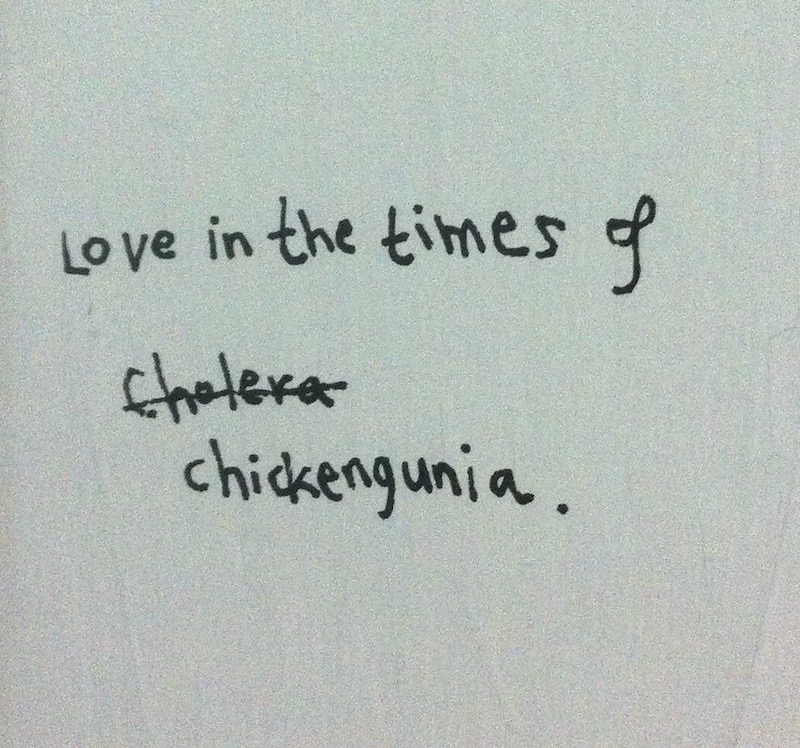 Love in the times of
Cholera
chickengunia.